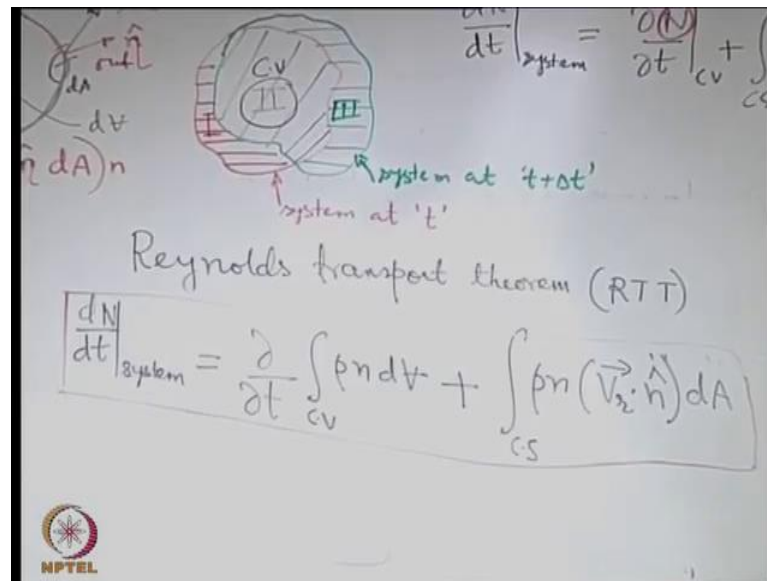 n̂
out
dA
d∀
n̂ dA)n
C.V
I
II
III
dN/dt|system = ∂(N)/∂t|CV + ∫CS
system at 't+Δt'
system at 't'
Reynolds transport theorem (RTT)
dN/dt|system = ∂/∂t ∫C.V ρn d∀ + ∫C.S ρn(V⃗r·n̂)dA
NPTEL